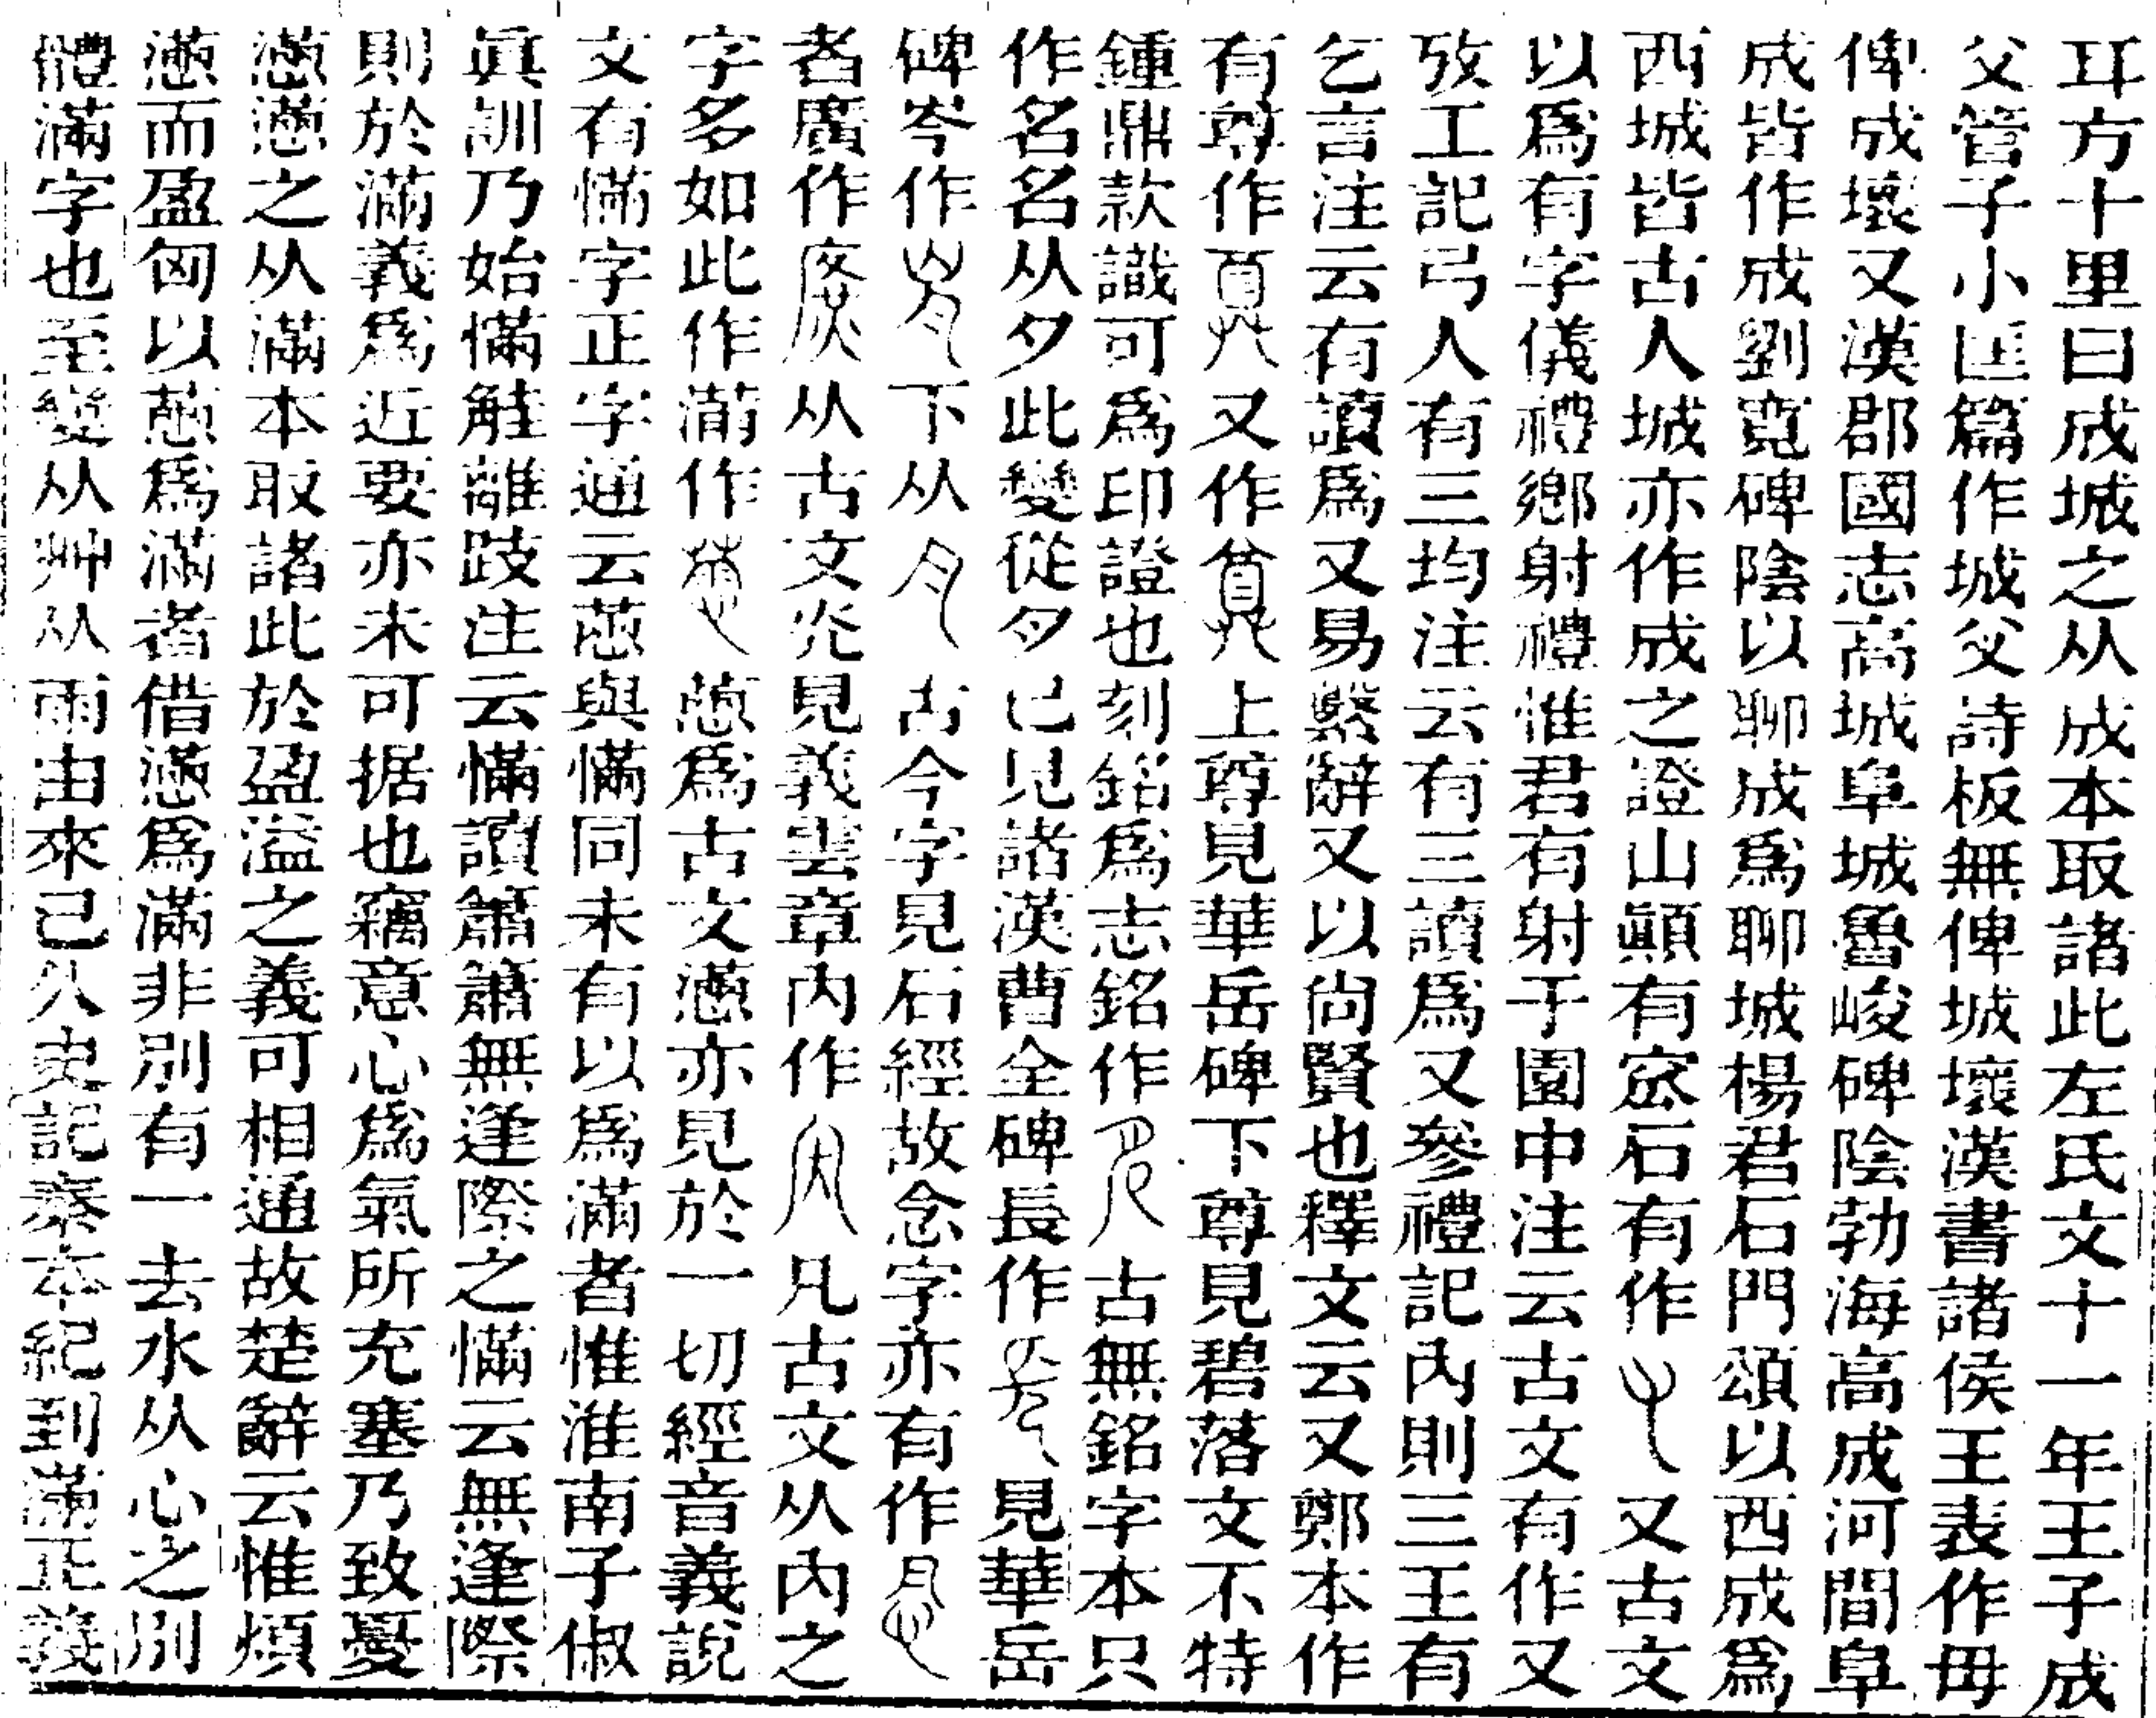 耳方十里曰成城之从成本取諸此左氏文十一年王子成
父管子小匡篇作城父詩板無俾城壞漢書諸侯王表作毋
俾成壞又漢郡國志高城阜城魯峻碑陰勃海高成河間阜
成皆作成劉寛碑陰以聊成爲聊城楊君石門頌以西成爲
西城皆古人城亦作成之證山顚有宻石有作又古文
以爲有字儀禮鄉射禮惟君有射于國中注云古文有作又
攷工記弓人有三均注云有三讀爲又參禮記內則三王有
乞言注云有讀爲又易繫辭又以尙賢也釋文云又鄭本作
有尊作又作上尊見華岳碑下尊見碧落文不特
鍾鼎款識可爲印證也刻銘爲志銘作古無銘字本只
作名名从夕此變從夕已見諸漢曹全碑長作見華岳
碑岑作下从古今字見石經故念字亦有作
者廣作从古文炗見義雲章內作凡古文从內之
字多如此作滿作𢠵爲古文懣亦見於一切經音義說
文有慲字正字通云𢠵與慲同未有以爲滿者惟淮南子俶
眞訓乃始慲觟離跂注云慲讀簫簫無逢際之慲云無逢際
則於滿義爲近要亦未可据也竊意心爲氣所充塞乃致憂
懣懣之从滿本取諸此於盈溢之義可相通故楚辭云惟煩
懣而盈匈以𢠵爲滿者借懣爲滿非別有一去水从心之別
體滿字也至變从艸从雨由來已久史記秦本紀到滿正義